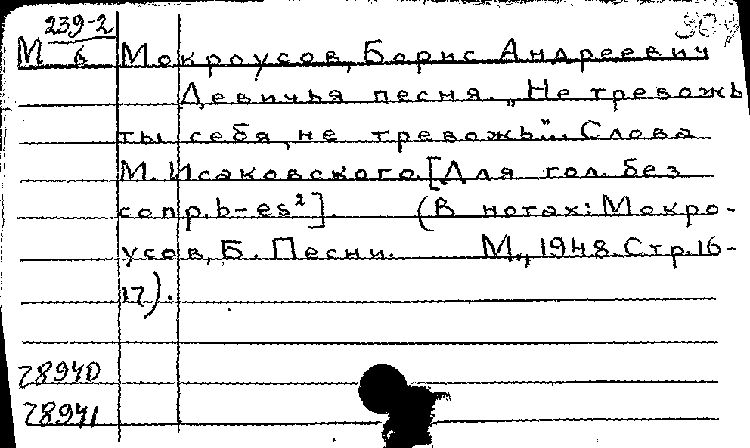 239-2
М в Мокроусов, Борис Андреевич
Девичья песня. „Не тревожь
ты себя, не тревожь"... Слова
М. Исаковского. [Для гол. без
сопр. b-es²]. (В нотах: Мокро-
усов, Б. Песни. М., 1948. Стр. 16-
17).
78940
78941